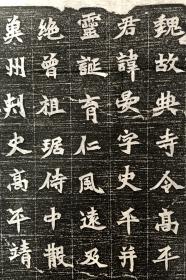 魏故典寺令高平
君諱晏字史平并
靈誕育仁風遠及
絶曾祖琚侍中散
冀州刾史高平靖